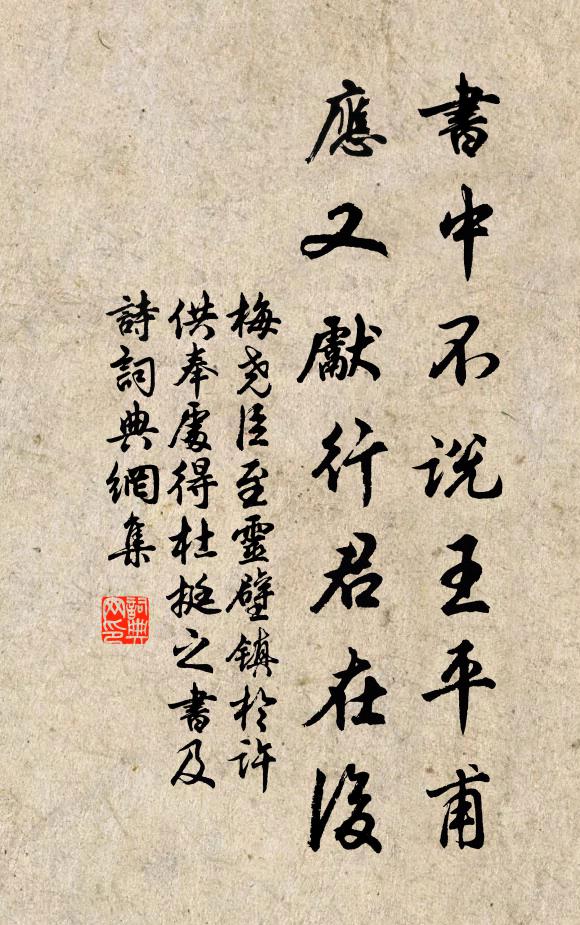 書中不説王平甫
應又獻行君在後
梅堯臣至靈壁鎮於許
供奉處得杜挺之書及
詩詞典網集
詞典
網印